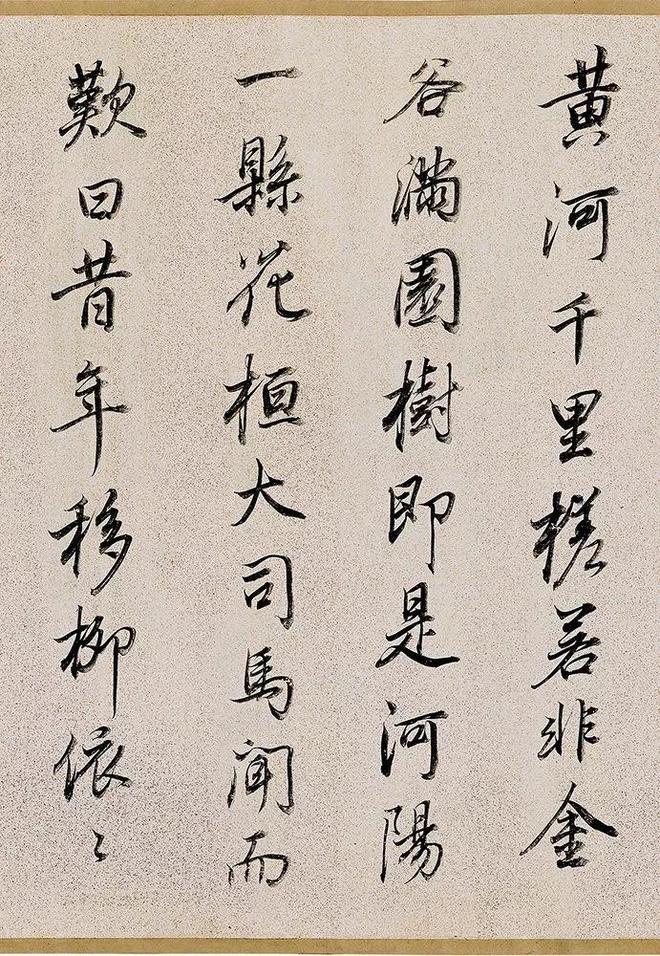 黄河千里槎若非金
谷滿園樹即是河陽
一縣花桓大司馬聞而
歎曰昔年移柳依〻